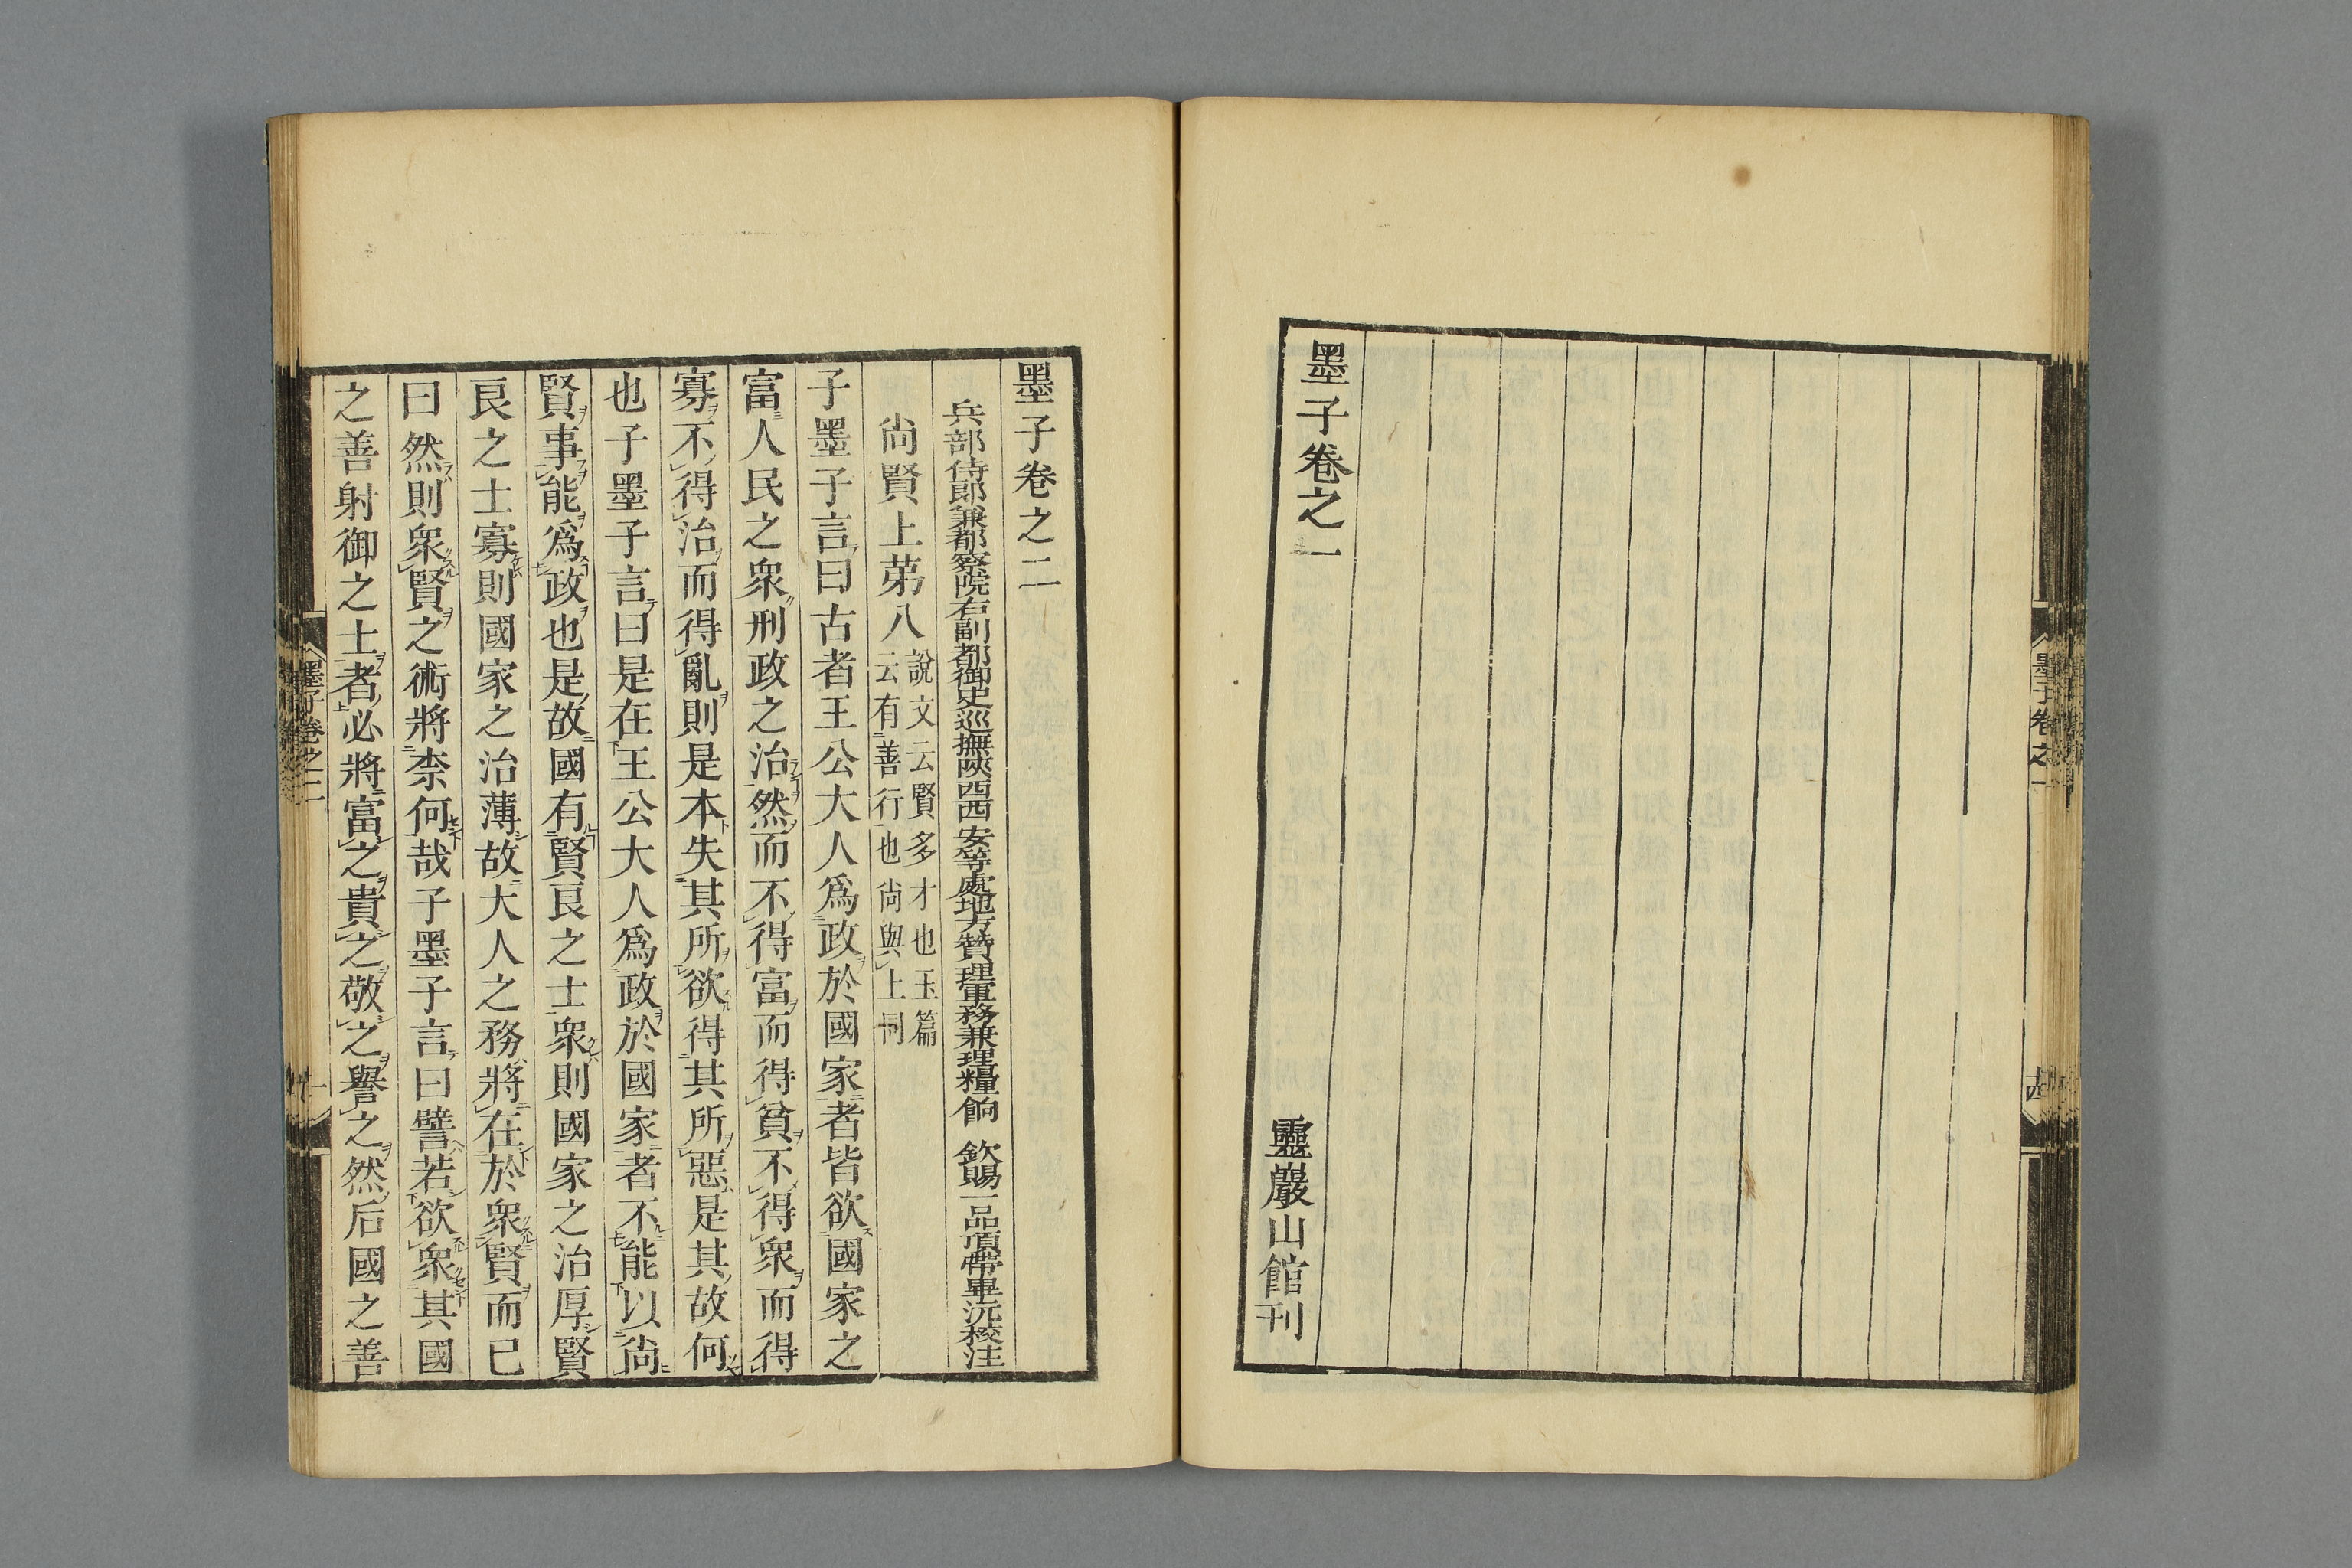 墨子卷之一
靈巖山館刊
墨子卷之一
十四
墨子卷之二
兵部侍郎兼都察院右副都御史巡撫陝西西安等處地方贊理軍務兼理糧餉 欽賜一品頂帶畢沅校注
尚賢上第八
說文云賢多才也玉篇
云有善行也尚與上同
子墨子言曰古者王公大人爲政於國家者皆欲國家之
富人民之衆刑政之治然而不得富而得貧不得衆而得
寡不得治而得亂則是本失其所欲得其所惡是其故何
也子墨子言曰是在王公大人爲政於國家者不能以尚
賢事能爲政也是故國有賢良之士衆則國家之治厚賢
良之士寡則國家之治薄故大人之務將在於衆賢而已
曰然則衆賢之術將柰何哉子墨子言曰譬若欲衆其國
之善射御之士者必將富之貴之敬之譽之然后國之善
墨子卷之二
一